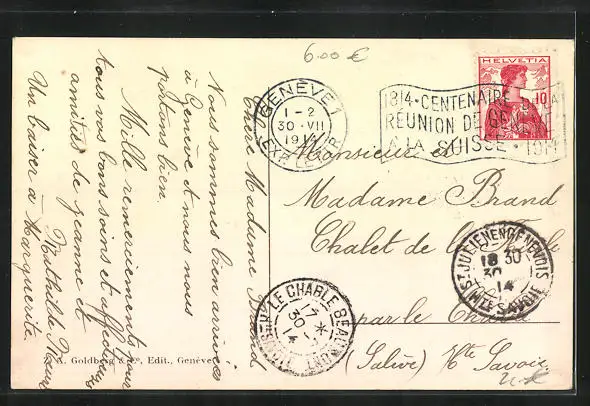 6.00 €
HELVETIA
10
GENÈVE 1
1-2
30.VII
EXP. LETTR.
1814 · CENTENAIRE DE LA
RÉUNION DE GE
A LA SUISSE · 1914
Chère Madame Brand
Nous sommes bien arrivées
à Genève et nous nous
portons bien.
Mille remerciements pour
tous vos bons soins et affectueuses
amitiés de Jeanne et
Mathilde
Un baiser à Marguerite.
Monsieur et
Madame Brand
Chalet de la
par le Châble
(Salève) Hte Savoie
ST JULIEN EN GENEVOIS
18 30
30
14
HTE SAVOIE
LE CHABLE BEAUMONT
17 *
30
14
HTE SAVOIE
A. Goldberg & Co, Edit., Genève